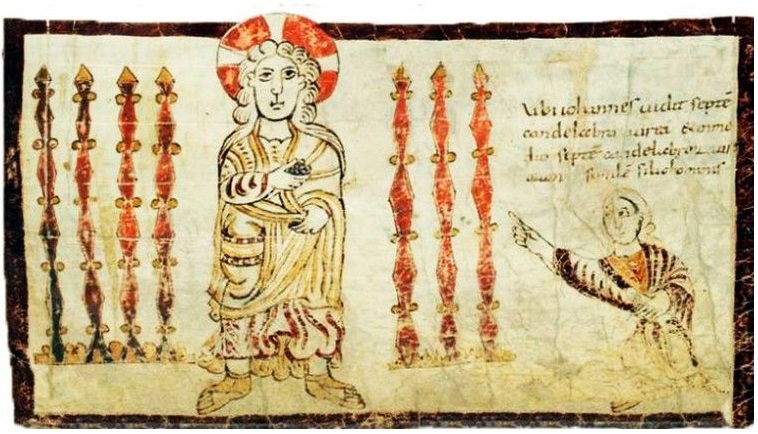 Ubi iohannes uidit septē
candelebra aurea & in me
dio septē candelebrorū
similē filio hominis